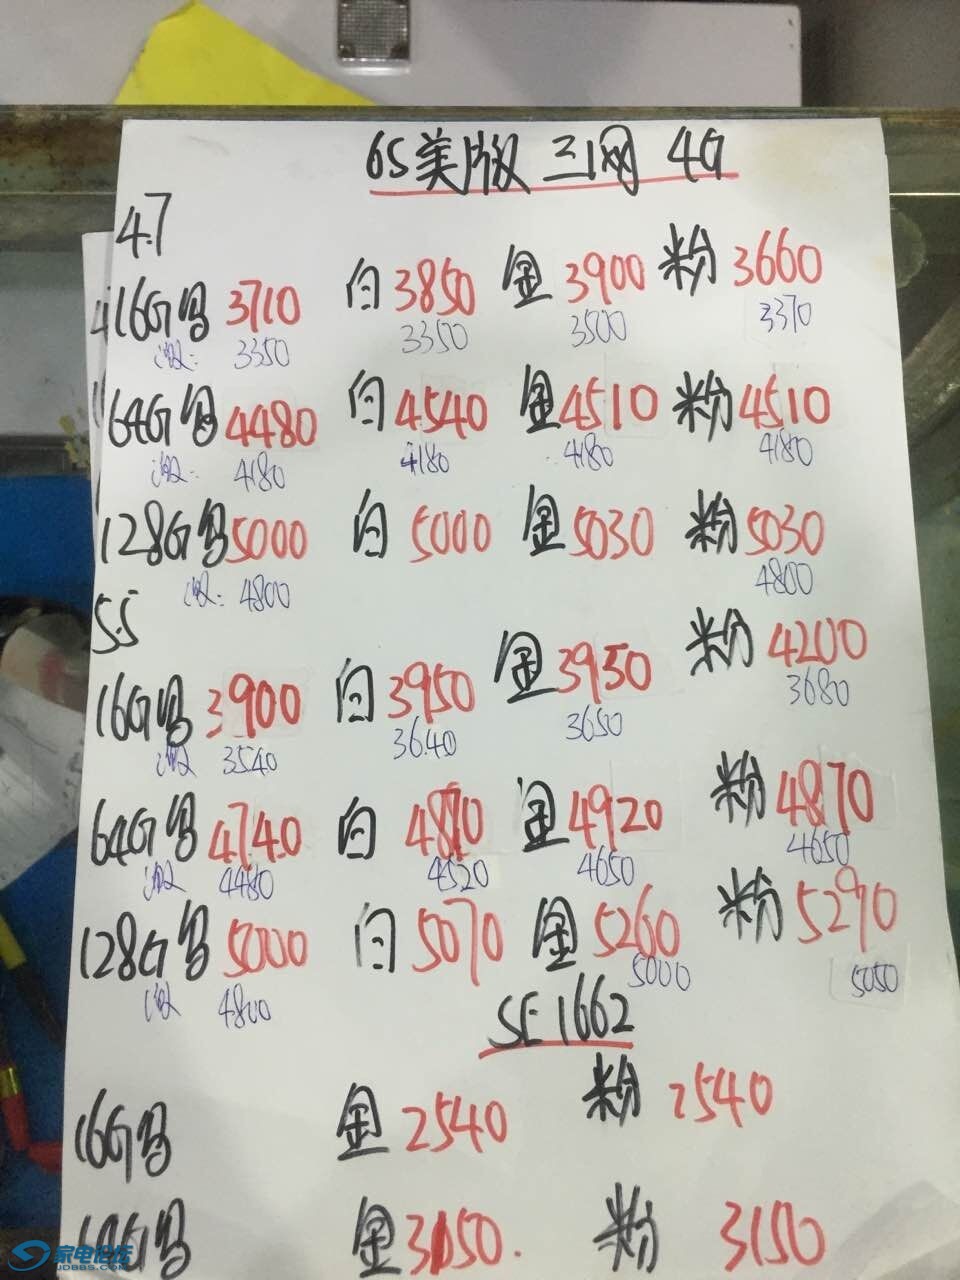 6S美版 三网 4G
4.7
16G 3710 白3850 金3900 粉3660
3350 3350 3500 3370
64G 4480 白4540 金4510 粉4510
4180 4180 4180 4180
128G 5000 白5000 金5030 粉5030
4800 4800
5.5
16G 3900 白3950 金3950 粉4200
3540 3640 3650 3680
64G 4740 白4870 金4920 粉4870
4480 4520 4650 4650
128G 5000 白5070 金5260 粉5290
4800 5000 5050
SE 1662
16G 金2540 粉2540
金3150. 粉 3150
家电论坛
JDBBS.COM